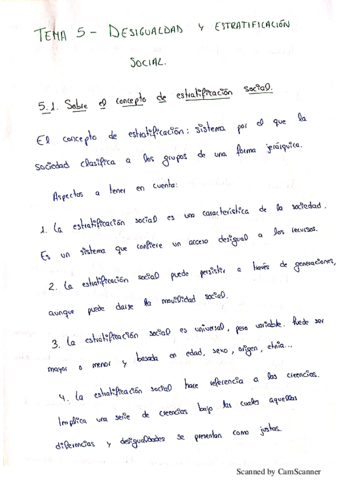 TEMA 5 - DESIGUALDAD Y ESTRATIFICACIÓN
SOCIAL.
5.1. Sobre el concepto de estratificación social.
El concepto de estratificación: sistema por el que la
sociedad clasifica a los grupos de una forma jerárquica.
Aspectos a tener en cuenta:
1. La estratificación social es una característica de la sociedad.
Es un sistema que confiere un acceso desigual a los recursos.
2. La estratificación social puede persistir a través de generaciones,
aunque puede darse la movilidad social.
3. La estratificación social es universal, pero variable. Puede ser
mayor o menor y basada en edad, sexo, origen, etnia...
4. La estratificación social hace referencia a las creencias.
Implica una serie de creencias bajo las cuales aquellas
diferencias y desigualdades se presentan como justas.
Scanned by CamScanner